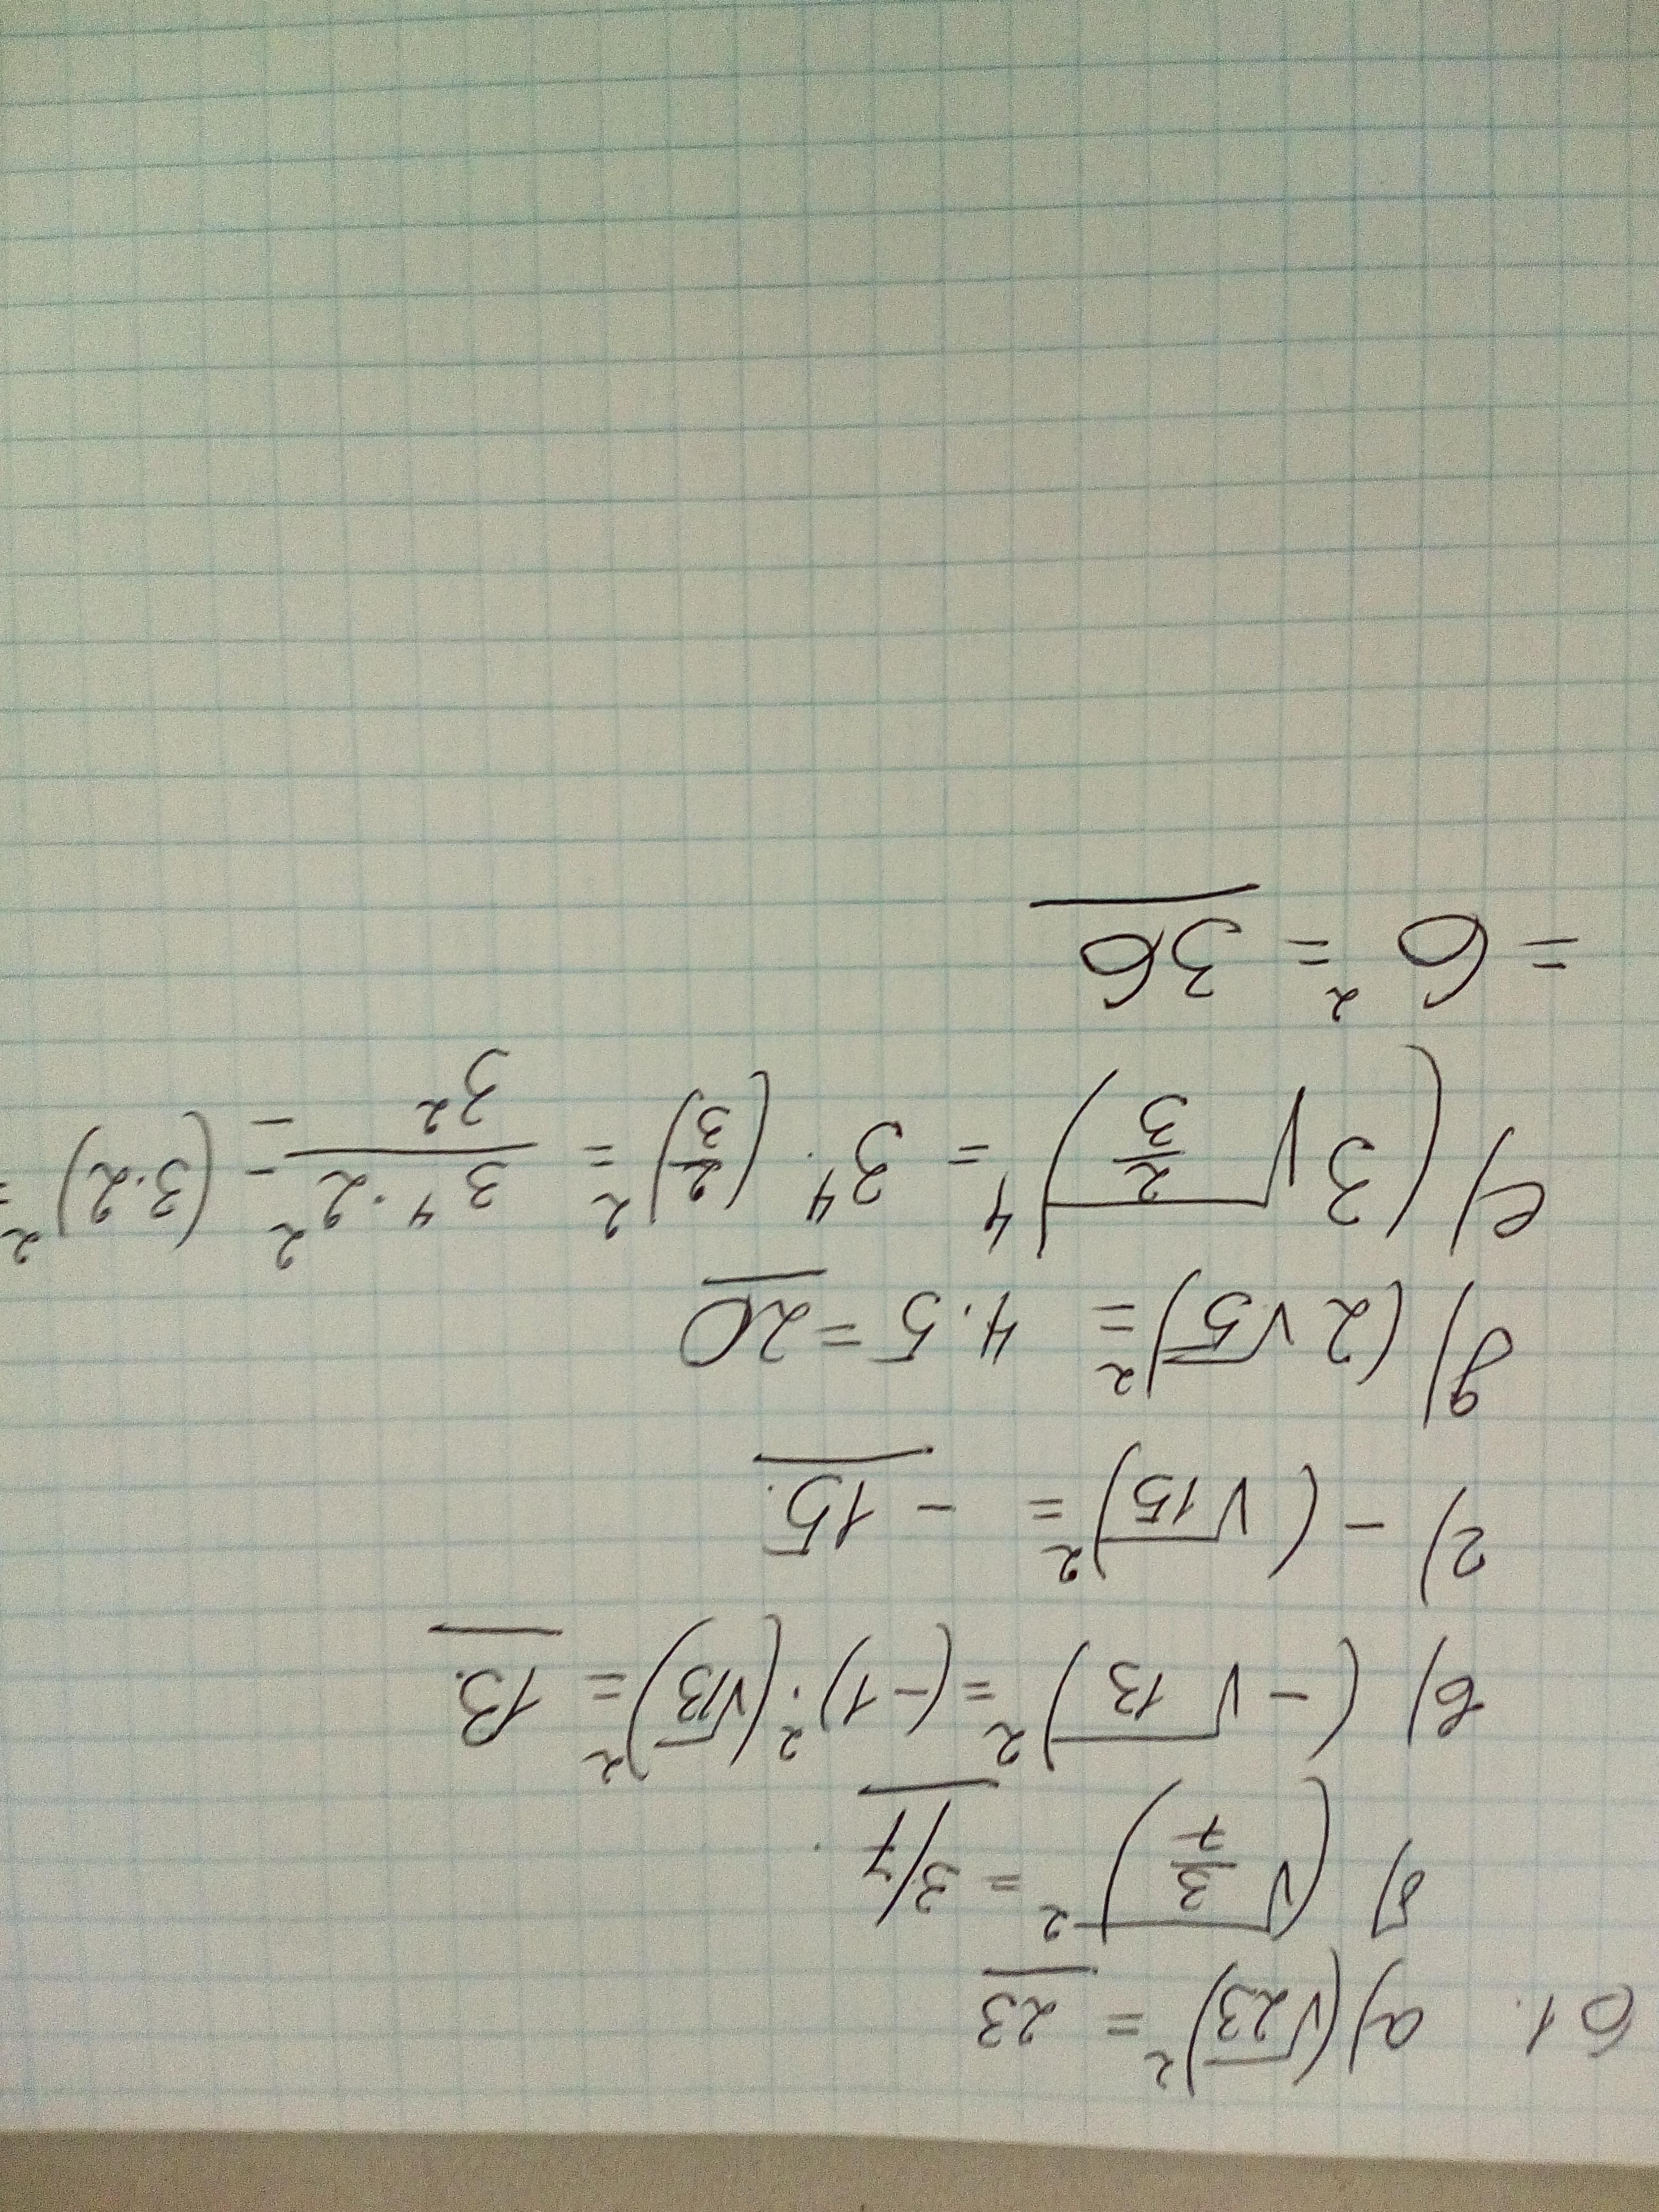 61. а) (√23)² = 23
б) (√3/7)² = 3/7
в) (-√13)² = (-1)²·(√13)² = 13.
г) - (√15)² = - 15.
д) (2√5)² = 4·5 = 20
е) (3√2/3)⁴ = 3⁴·(2/3)² = 3⁴·2²/3² = (3·2)² =
= 6² = 36